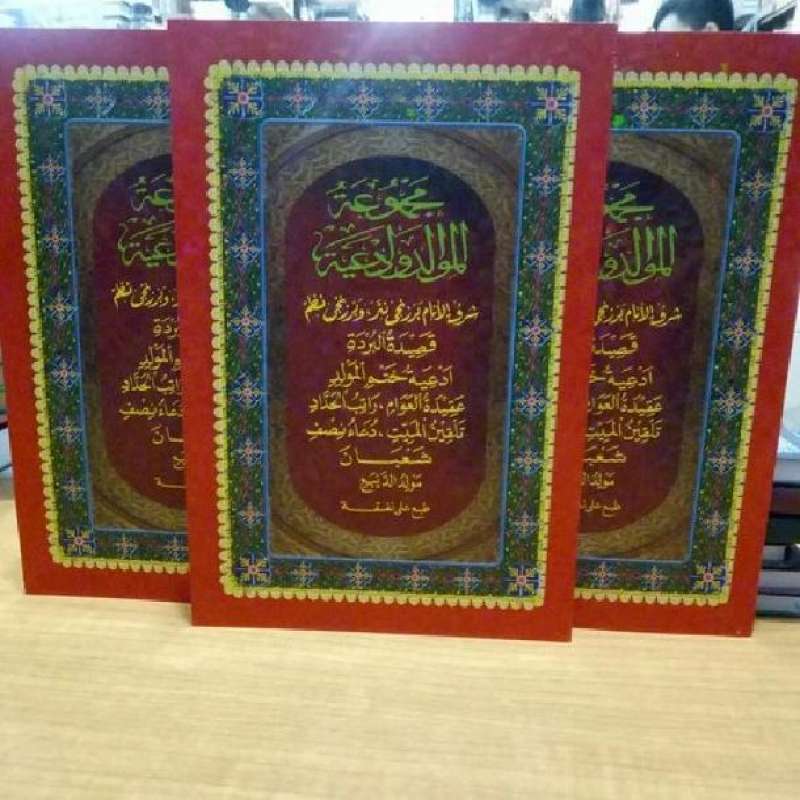 مَجْمُوعَةُ
الْمَوَالِدِ وَأَدْعِيَةِ
شرف الأنام برزنجي نثر، وبرزنجي نظم
قَصِيْدَةُ الْبُرْدَةِ
ادْعِيَةُ خَتْمِ الْمَوَالِدِ
عَقِيْدَةُ الْعَوَامِ، رَاتِبُ الْحَدَّادِ
تَلْقِيْنُ الْمَيِّتِ، دُعَاءُ نِصْفِ
شَعْبَانَ
مَوْلِدُ الدَّيْبَعِ
طبع على نفقة